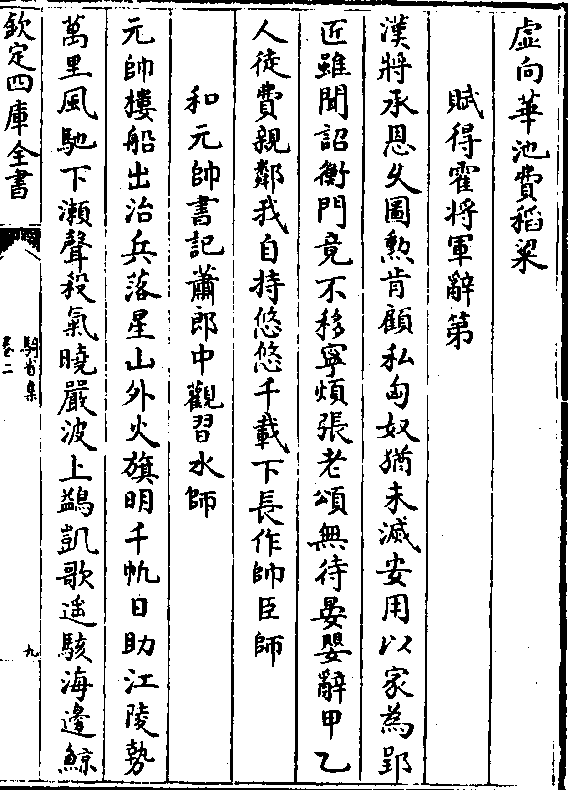 虛向華池費稻粱
賦得霍將軍辭第
漢將承恩久圖勲肯顧私匈奴猶未滅安用以家為郢
近雖聞詔衡門竟不移寧煩張老頌無待晏嬰辭甲乙
人徒費親鄰我自持悠悠千載下長作帥臣師
和元帥書記蕭郎中觀習水師
元帥樓船出治兵落星山外火旗明千帆日助江陵勢
萬里風馳下瀨聲殺氣曉嚴波上鷁凱歌遥駭海邊鯨
欽定四庫全書
騎省集
卷二
九